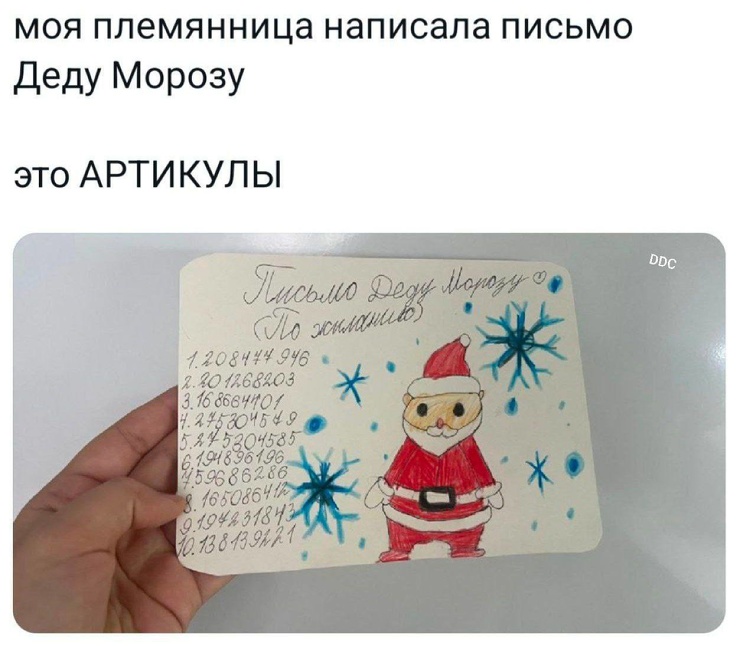 моя племянница написала письмо
Деду Морозу
это АРТИКУЛЫ
DDC
Письмо Деду Морозу
(По жиланию)
2.201268203
3.168664401
6.194896196
7.59686286
8.165086412
9.194231843
10.138139221